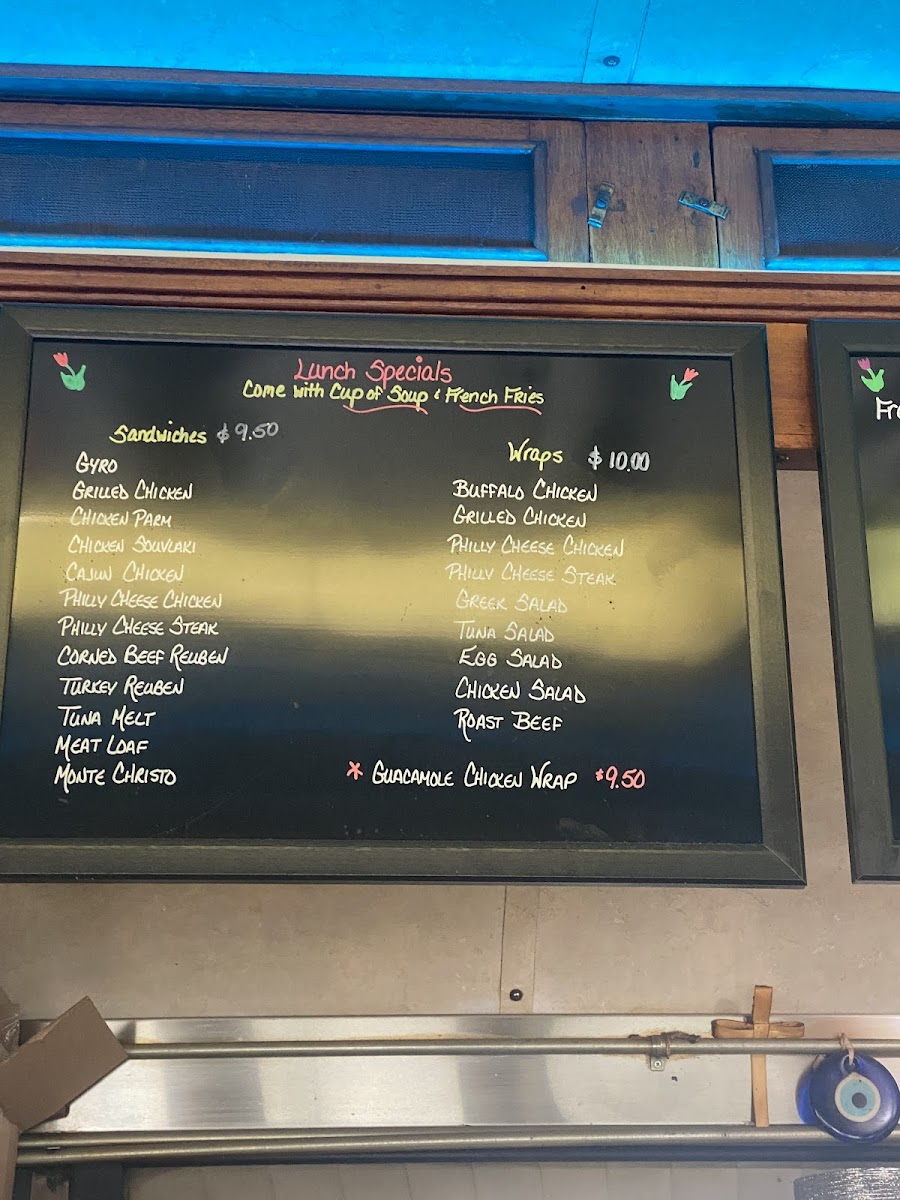 Lunch Specials
Come with Cup of Soup & French Fries
Sandwiches $ 9.50
Gyro
Grilled Chicken
Chicken Parm
Chicken Souvlaki
Cajun Chicken
Philly Cheese Chicken
Philly Cheese Steak
Corned Beef Reuben
Turkey Reuben
Tuna Melt
Meat Loaf
Monte Christo
Wraps $ 10.00
Buffalo Chicken
Grilled Chicken
Philly Cheese Chicken
Philly Cheese Steak
Greek Salad
Tuna Salad
Egg Salad
Chicken Salad
Roast Beef
* Guacamole Chicken Wrap $9.50